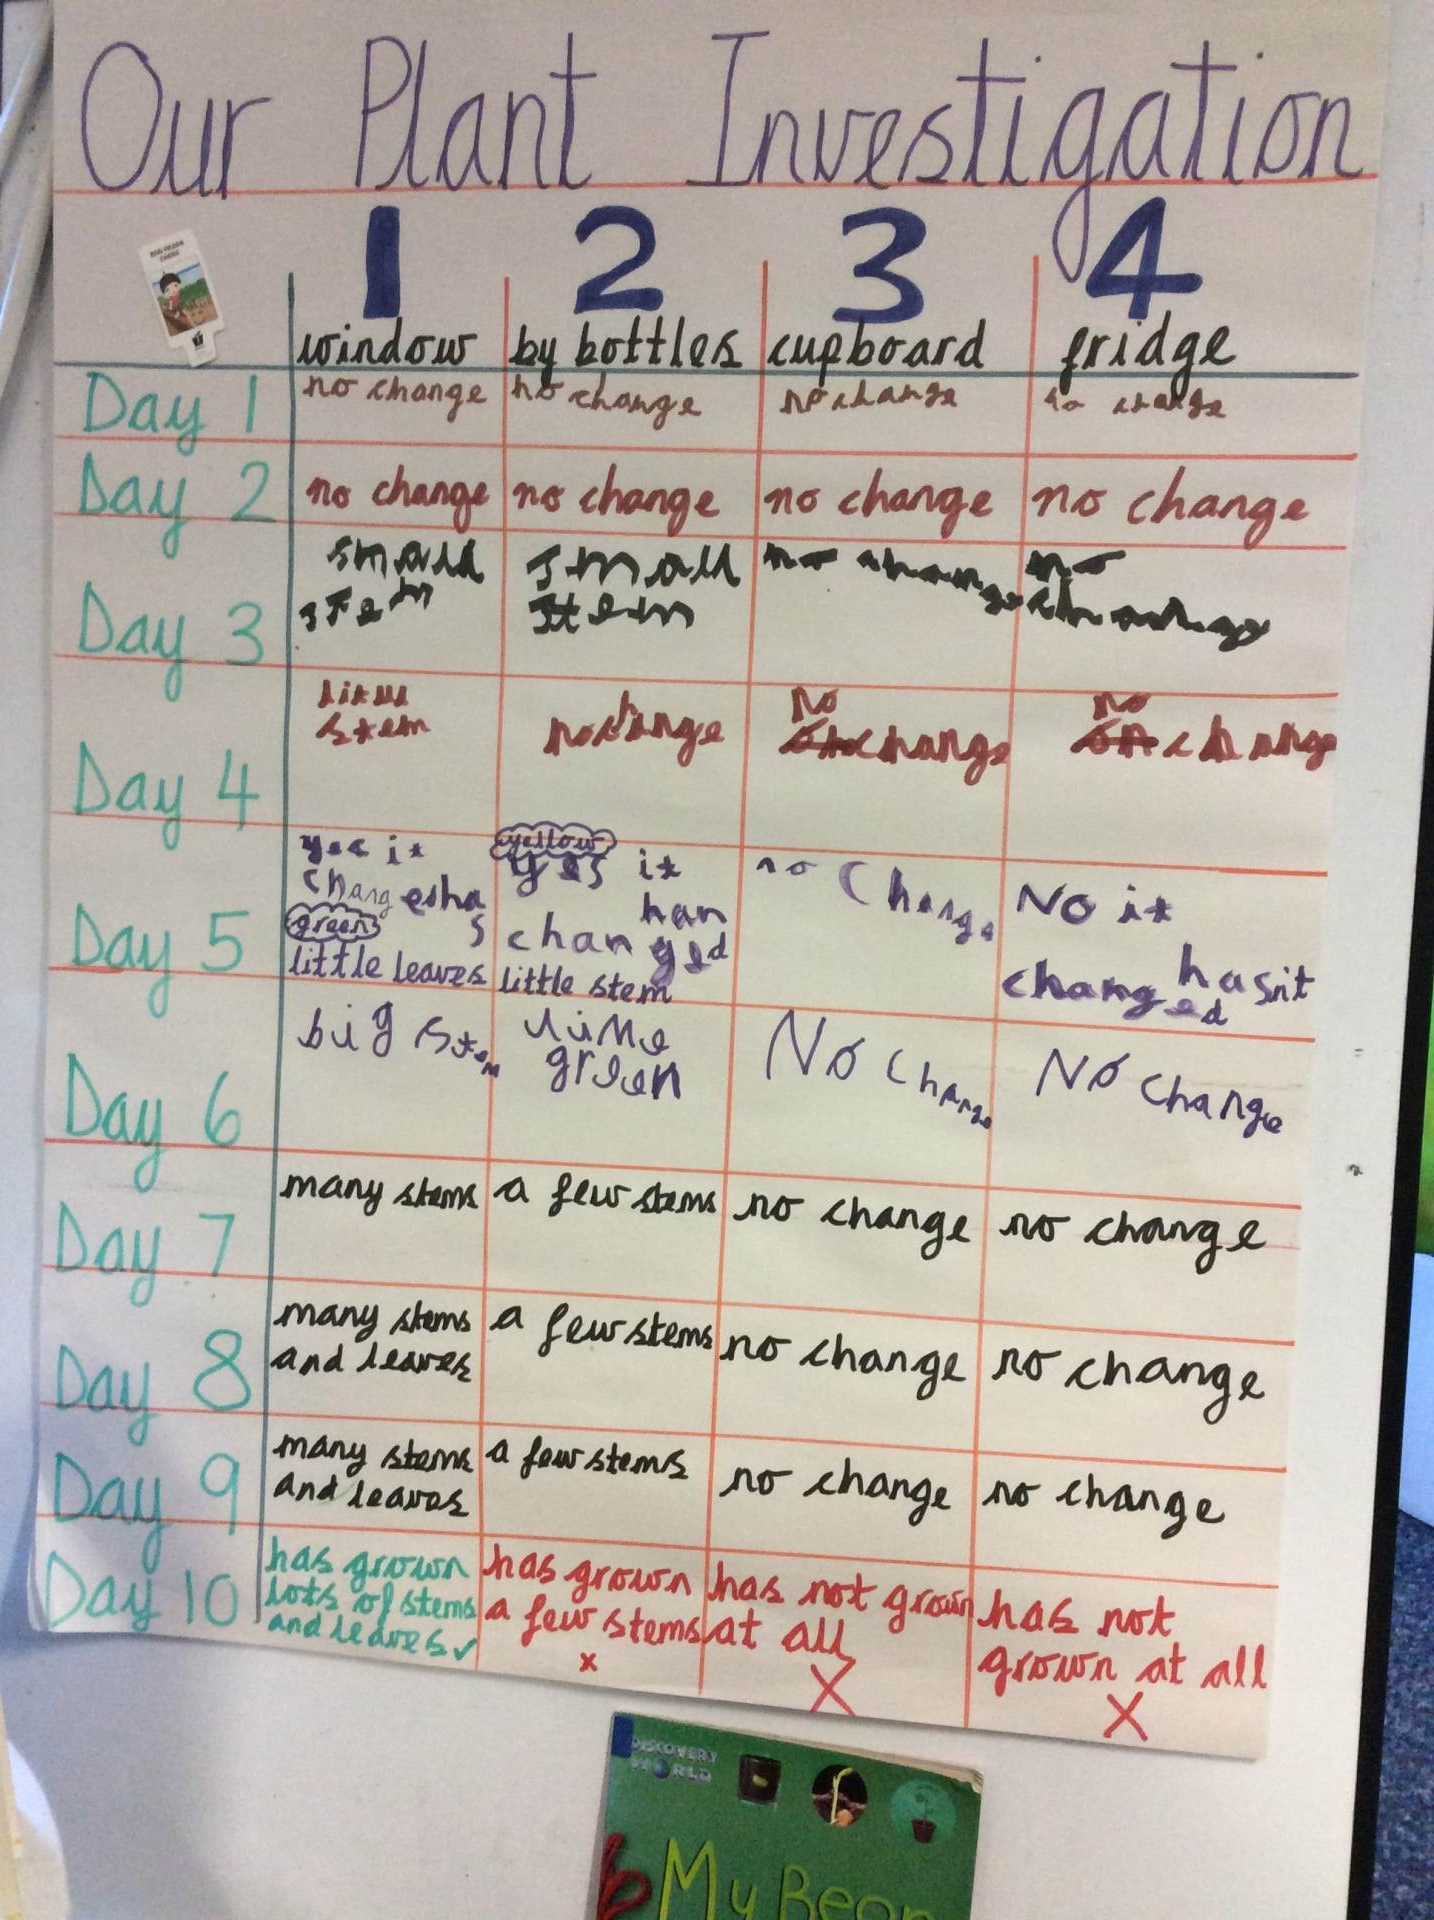 Our Plant Investigation
1 2 3 4
window by bottles cupboard fridge
Day 1 no change no change no change no change
Day 2 no change no change no change no change
Day 3
small
stem
small
stem
no change
no
change
Day 4
stem
no change
no
change
no
change
Day 5
yes it
changes ha
s
green
little leaves
yellow
yes it
han
changed
little stem
no change
No it
hasnt
changed
Day 6
big stem
lime
green
No change
No change
Day 7 many stems a few stems no change no change
Day 8
many stems
and leaves
a few stems
no change
no change
Day 9
many stems
and leaves
a few stems
no change
no change
Day 10
has grown
lots of stems
and leaves ✓
has grown
a few stems
x
has not grown
at all
X
has not
grown at all
X
DISCOVERY
WORLD
My Bean